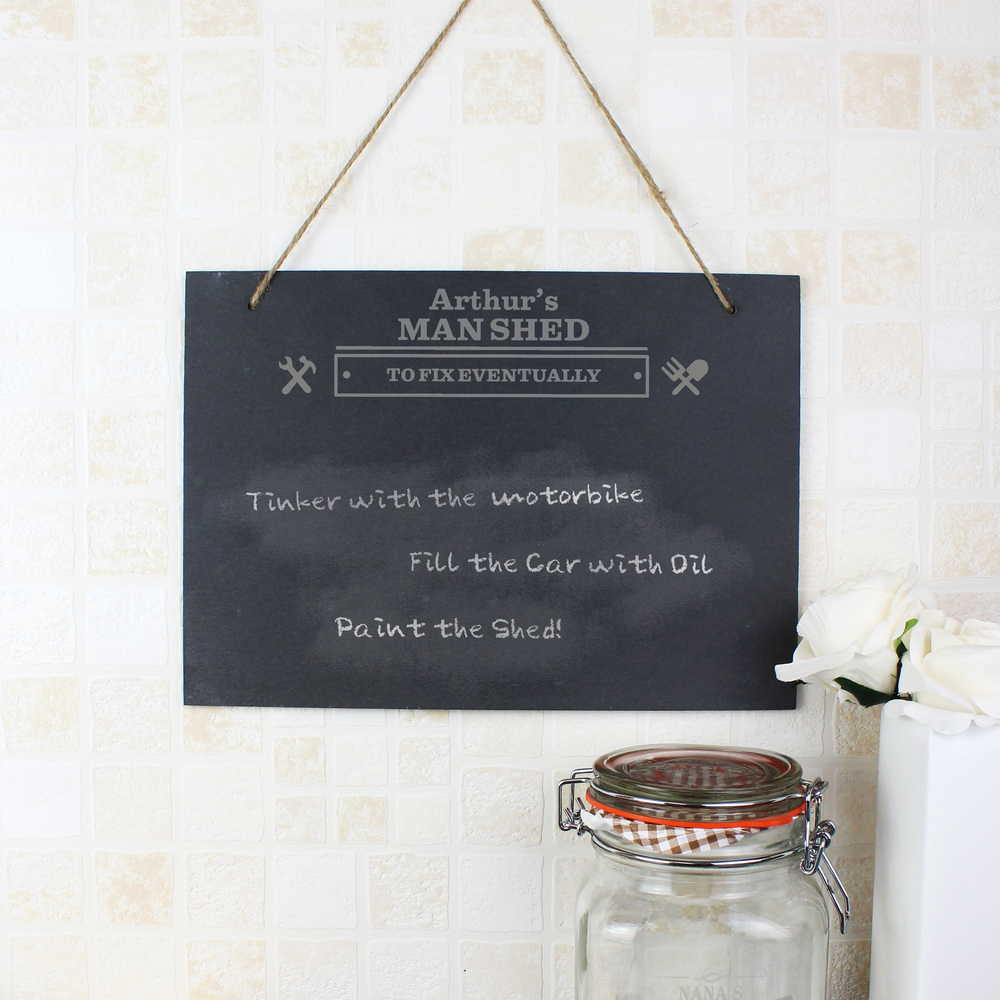 Arthur's
MAN SHED
TO FIX EVENTUALLY
Tinker with the motorbike
Fill the Car with Oil
Paint the Shed!
NANA'S